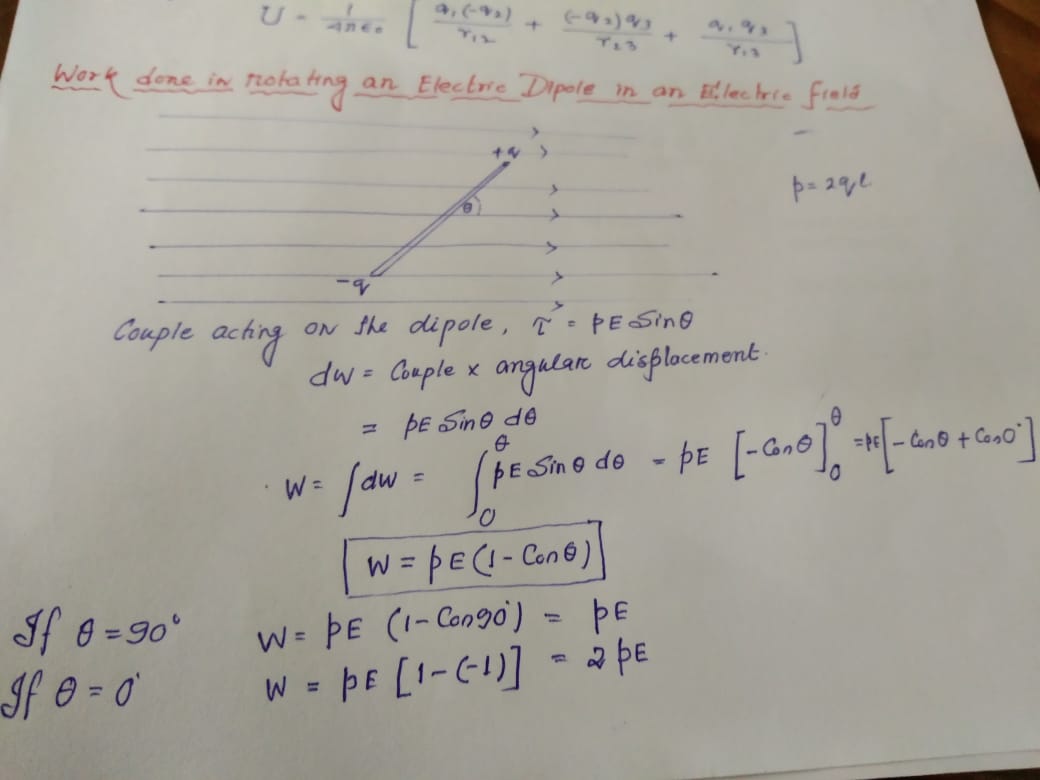 U = 1/4πε₀ [ q₁(-q₂)/r₁₂ + (-q₂)q₃/r₂₃ + q₁q₃/r₁₃ ]
Work done in rotating an Electric Dipole in an Electric field
+q
p = 2ql
θ
-q
Couple acting on the dipole, τ = pE Sinθ
dW = Couple x angular displacement.
= pE Sinθ dθ
W = ∫dW = ∫₀^θ pE Sinθ dθ = pE [-Cosθ]₀^θ = pE[-Cosθ + Cos0°]
W = pE(1 - Cosθ)
If θ = 90° W = pE (1 - Cos90°) = pE
If θ = 0° W = pE [1 - (-1)] = 2pE